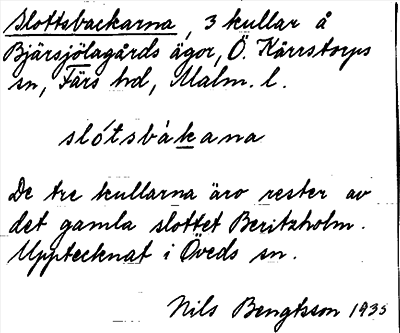 Slottsbackarna, 3 kullar å
Bjärsjölagårds ägor, Ö. Kärrstorps
sn, Färs hd, Malm. l.
slótsbàkana
De tre kullarna äro rester av
det gamla slottet Beritzholm.
Upptecknat i Öveds sn.
Nils Bengtsson 1935